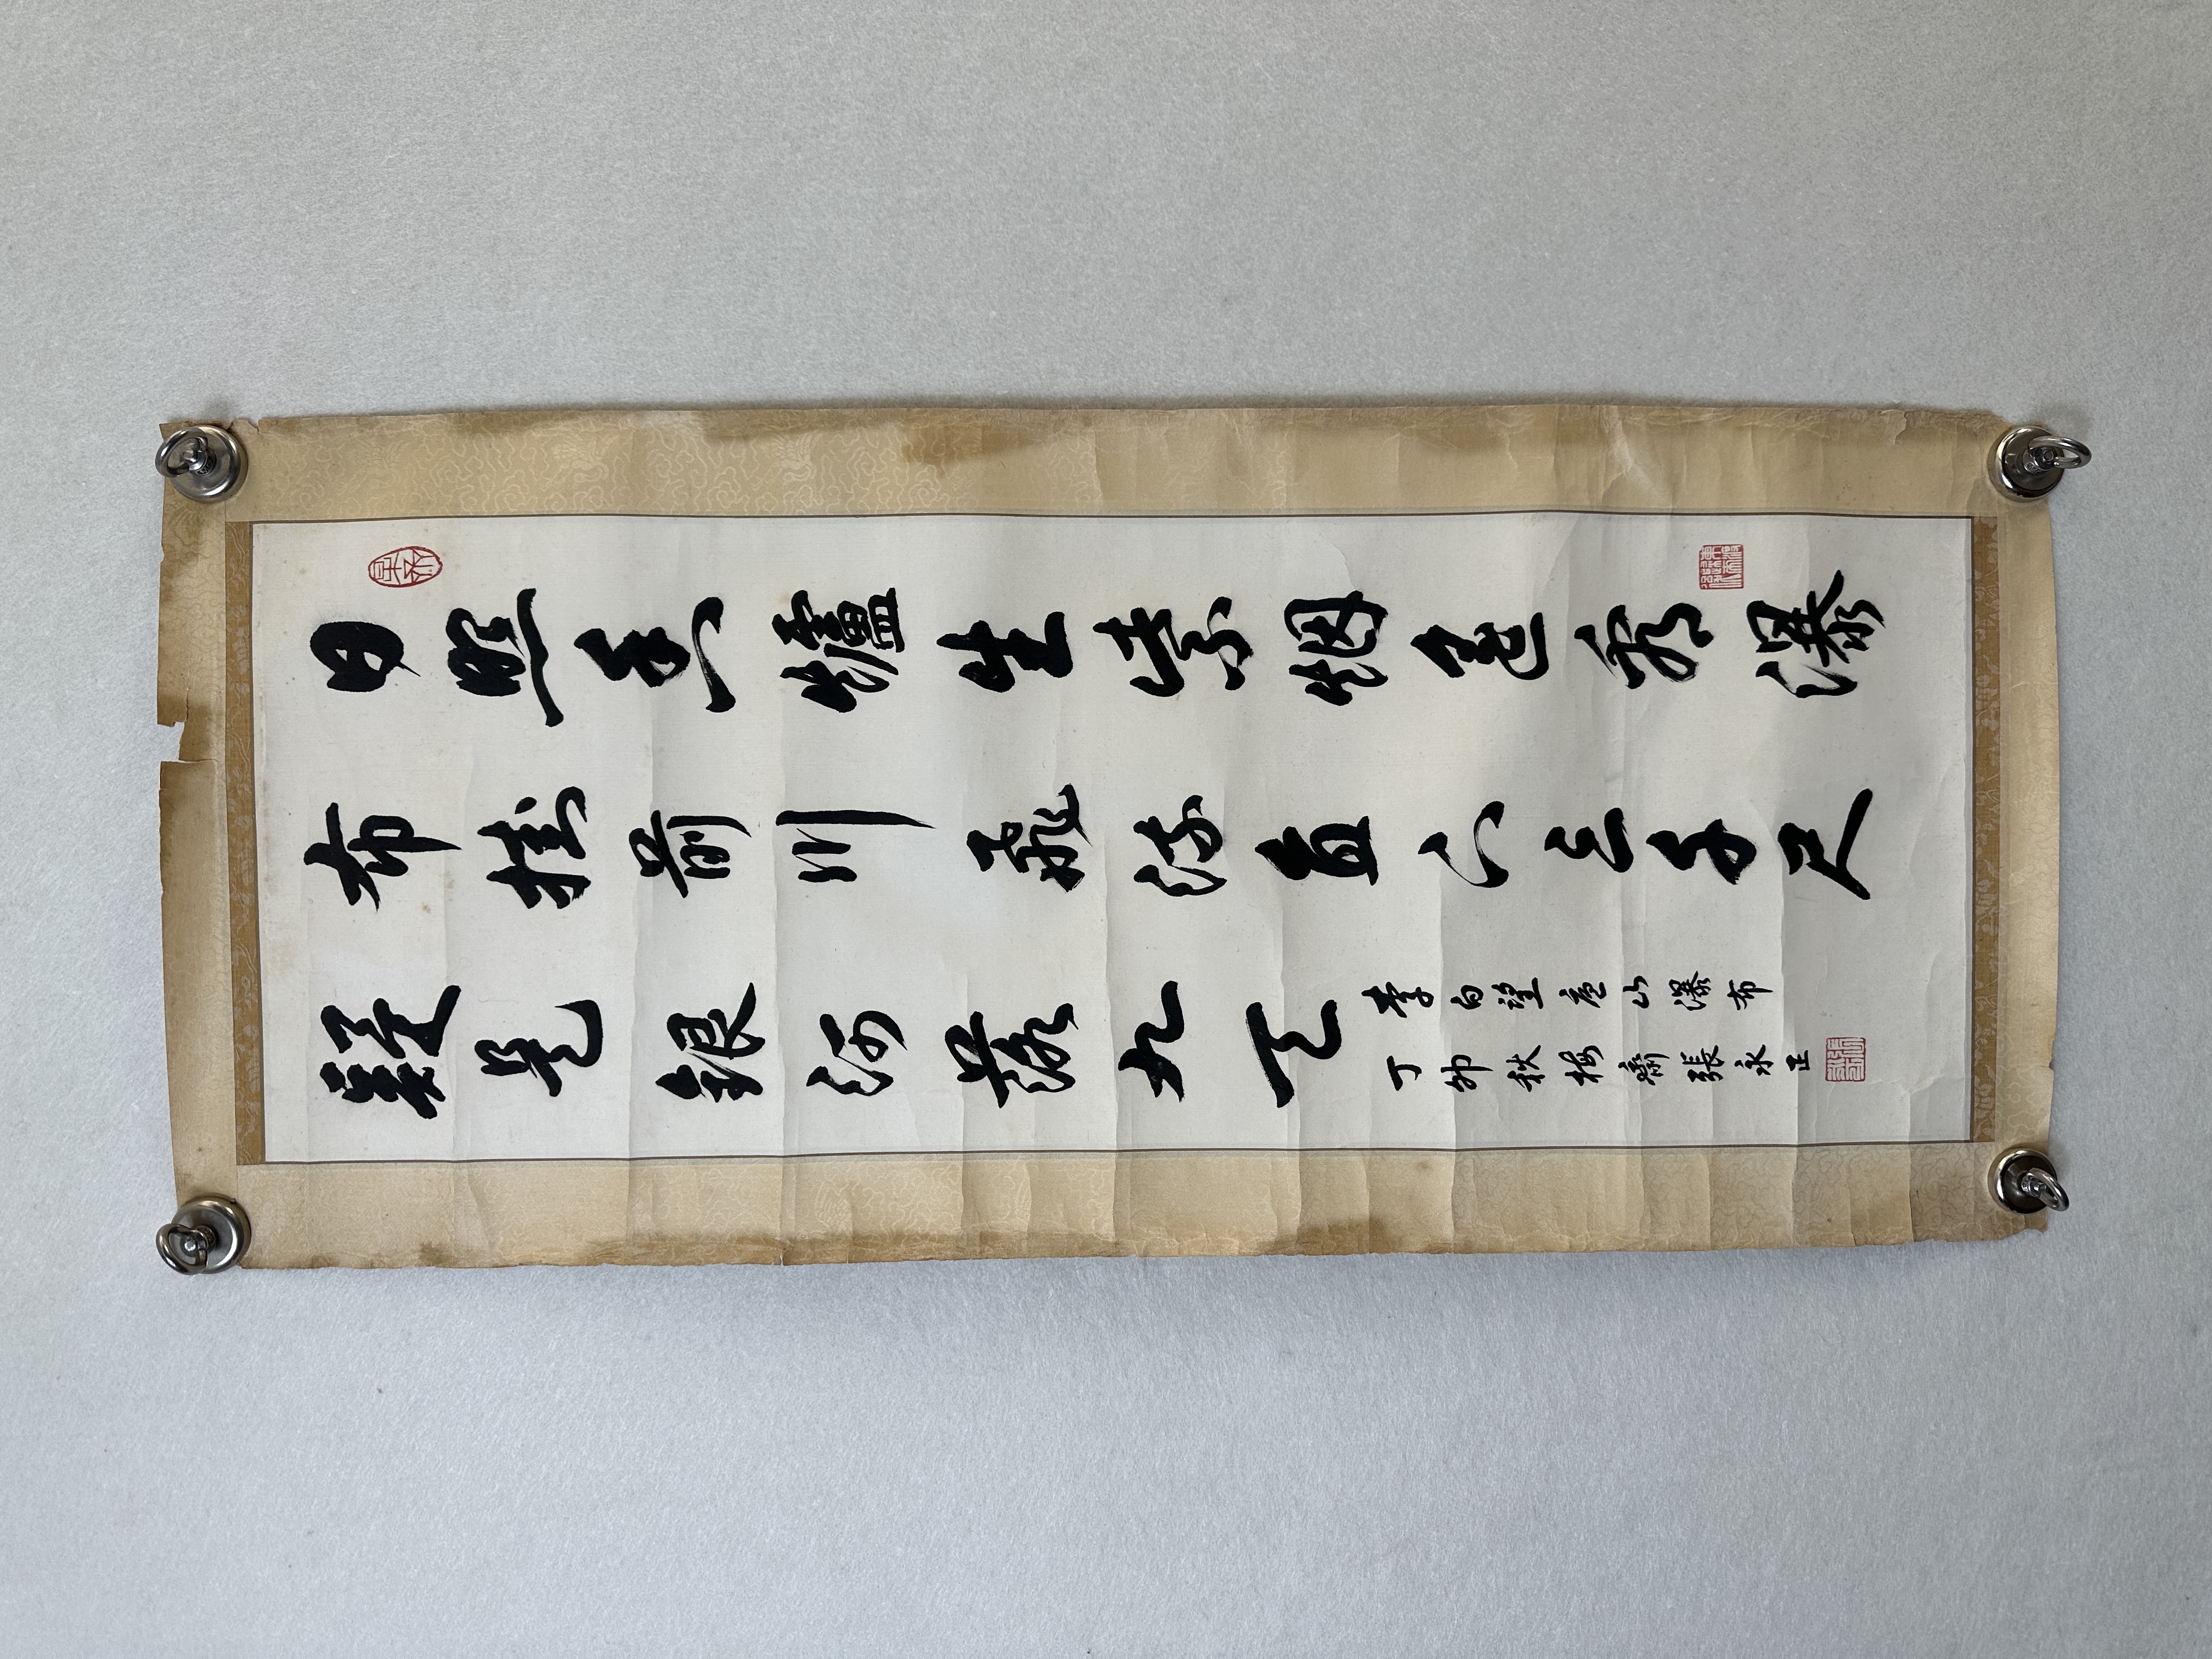 日照香爐生紫烟遙看瀑
布掛前川飛流直下三千尺
疑是銀河落九天
李白望廬山瀑布
丁卯秋梅齋張永正